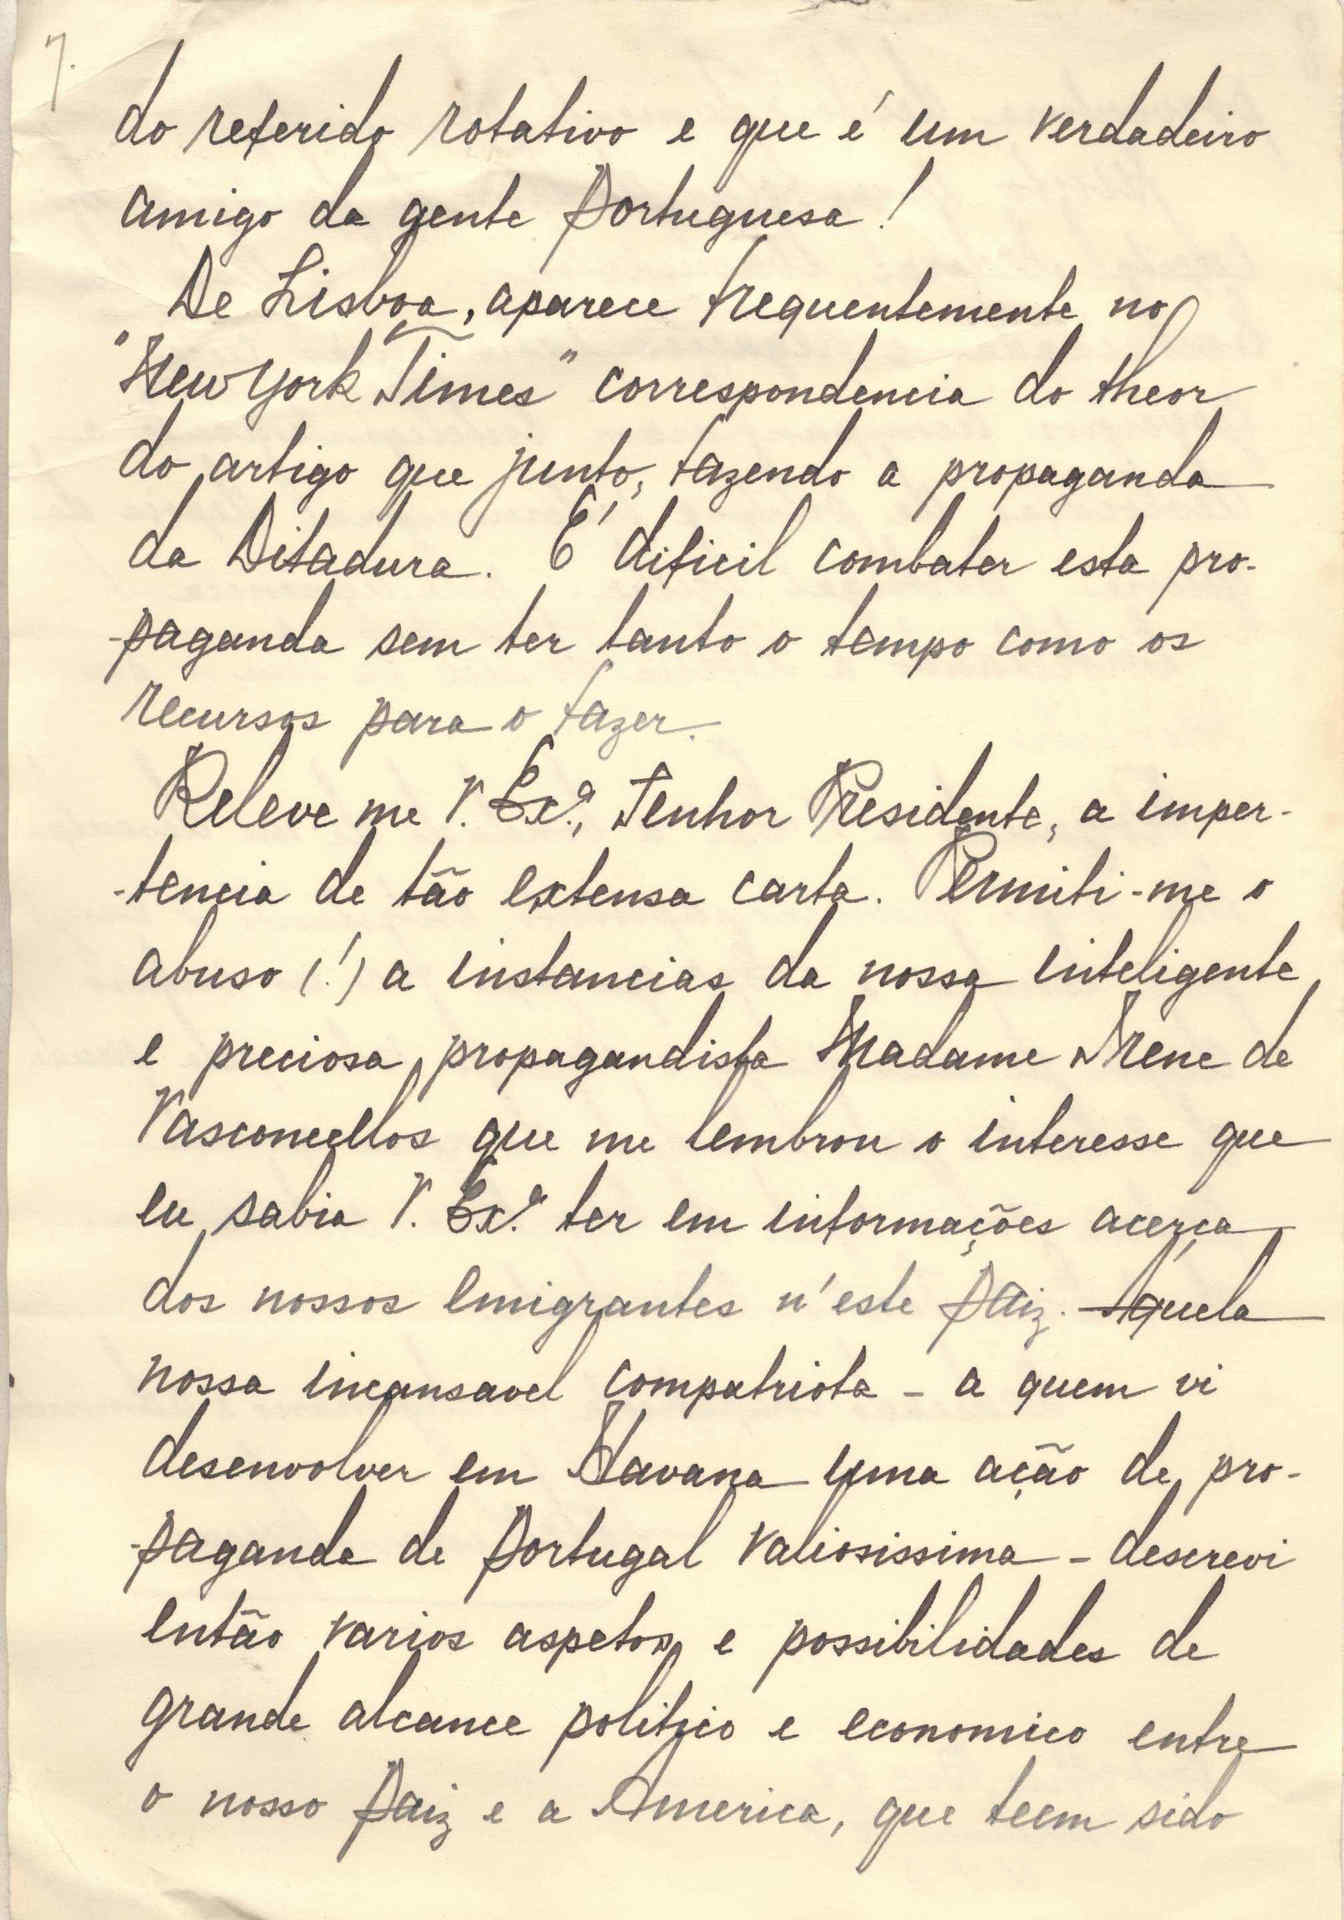 7.
do referido rotativo e que é um verdadeiro
amigo da gente Portuguesa!
De Lisboa, aparece frequentemente no
"New York Times" correspondencia do theor
do artigo que junto, fazendo a propaganda
da Ditadura. É dificil combater esta pro-
-paganda sem ter tanto o tempo como os
recursos para o fazer.
Releve me V. Exª., Senhor Presidente, a imper-
-tencia de tão extensa carta. Permiti-me o
abuso (!) a instancias da nossa inteligente
e preciosa propagandista Madame Irene de
Vasconcellos que me lembrou o interesse que
eu sabia V. Exª. ter em informações acêrca
dos nossos Emigrantes n'este Paiz. Aquela
nossa incansavel compatriota - a quem vi
desenvolver em Havana uma ação de pro-
-paganda de Portugal valiosissima - descrevi
então varios aspetos e possibilidades de
grande alcance politico e economico entre
o nosso Paiz e a America, que teem sido